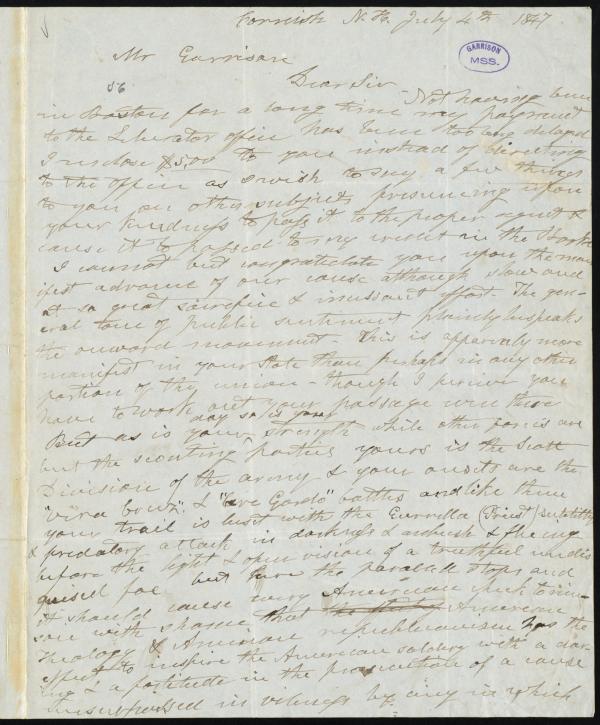 Cornish N.H. July 4th 1847
GARRISON
MSS.
Mr Garrison
56
Dear Sir
Not having been
in Boston for a long time my payment
to the Liberator office has been too long delayed
I inclose $5,00 to you instead of directing
to the office as I wish to say a few things
to you on other subjects presuming upon
your kindness to pass it to the proper agent &
cause it to passed to my credit in the Books
I cannot but congratulate you upon the man
ifest advance of our cause although slow and
at so great sacrifice & incessant effort. The gen-
eral tone of public sentiment plainly bespeaks
the onward movement. This is apparently more
manifest in your State than perhaps in any other
portion of the union - though I perceive you
have to work out your passage even there
day so is your
But as is your strength while other forces are
but the scouting parties yours is the Scott
Division of the army & your audits are the
"vira cruz" & "cerro Gordo" battles and like them
your trail is beset with the Guerrilla (Priest) subtilty
& predatory attack in darkness & ambush & fleeing
before the light & open vision of a truthful undis
guised foe but here the parallel stops and
it should cause every American cheek to crim-
son with shame that American
Theology & American republicanism has the
effect to inspire the American soldiery with a dar-
ing & a fortitude in the prosecution of a cause
unsurpassed in vileness by any in which